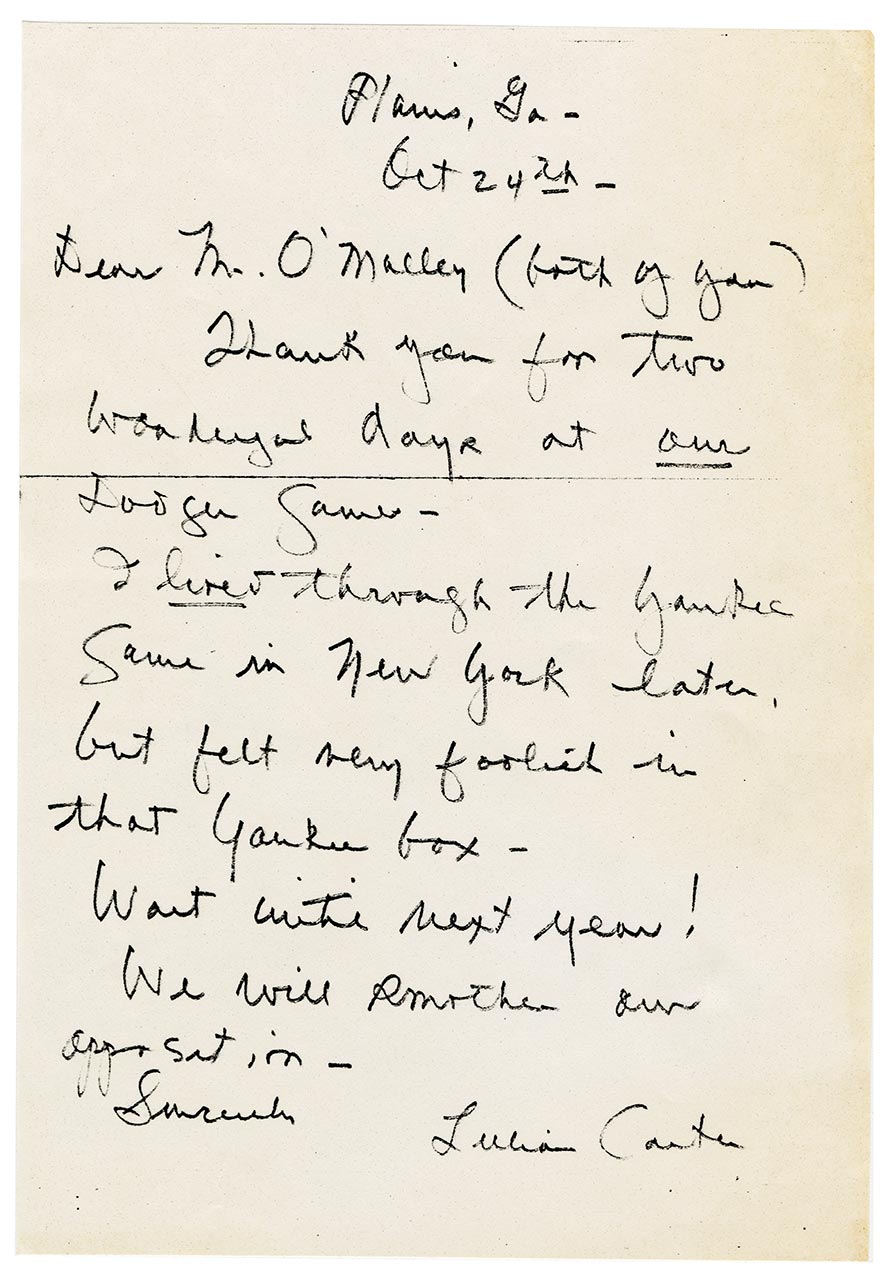 Plains, Ga -
Oct 24th -
Dear Mr. O'Malley (both of you)
Thank you for two
wonderful days at our
Dodger Games -
I lived through the Yankee
Game in New York later,
but felt very foolish in
that Yankee box -
Wait until next year!
We will smother our
opposition -
Sincerely
Lillian Carter